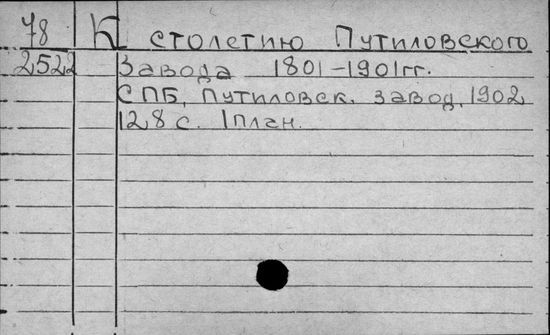 78 К столетию Путиловского
2522 Завода 1801-1901 гг.
СПБ, Путиловск. завод, 1902
128 с. 1 план.